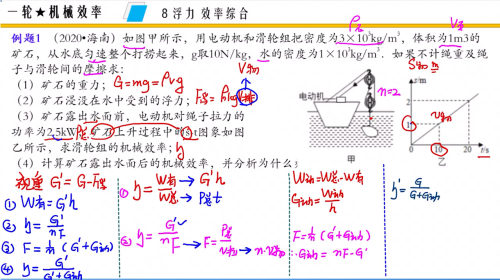 一轮★机械效率
8 浮力 效率综合
例题1（2020•海南）如图甲所示，用电动机和滑轮组把密度为3×10³kg/m³，体积为1m3的
矿石，从水底匀速整个打捞起来，g取10N/kg，水的密度为1×10³kg/m³．如果不计绳重及绳
子与滑轮间的摩擦求：
（1）矿石的重力；
G=mg=ρvg
（2）矿石浸没在水中受到的浮力；
（3）矿石露出水面前，电动机对绳子拉力的
功率为2.5kW，矿石上升过程中的s-t图象如图
乙所示，求滑轮组的机械效率；
η
（4）计算矿石露出水面后的机械效率，并分析为什么
电动机
n=2
甲
s/m
2
1
0
10
20
t/s
乙
G'=G-F浮
① W有=G'h
② η=G'/nF
③ F=1/n(G'+G动)
④ η=G'/G'+G动
① η=W有/W总
→G'h
→P总t
② η=G'/nF
→F=P总/v绳
→n·v物
W动=W总-W有
G动=W动/h
F=1/n(G'+G动)
∴G动=nF-G'
η'=G/G+G动